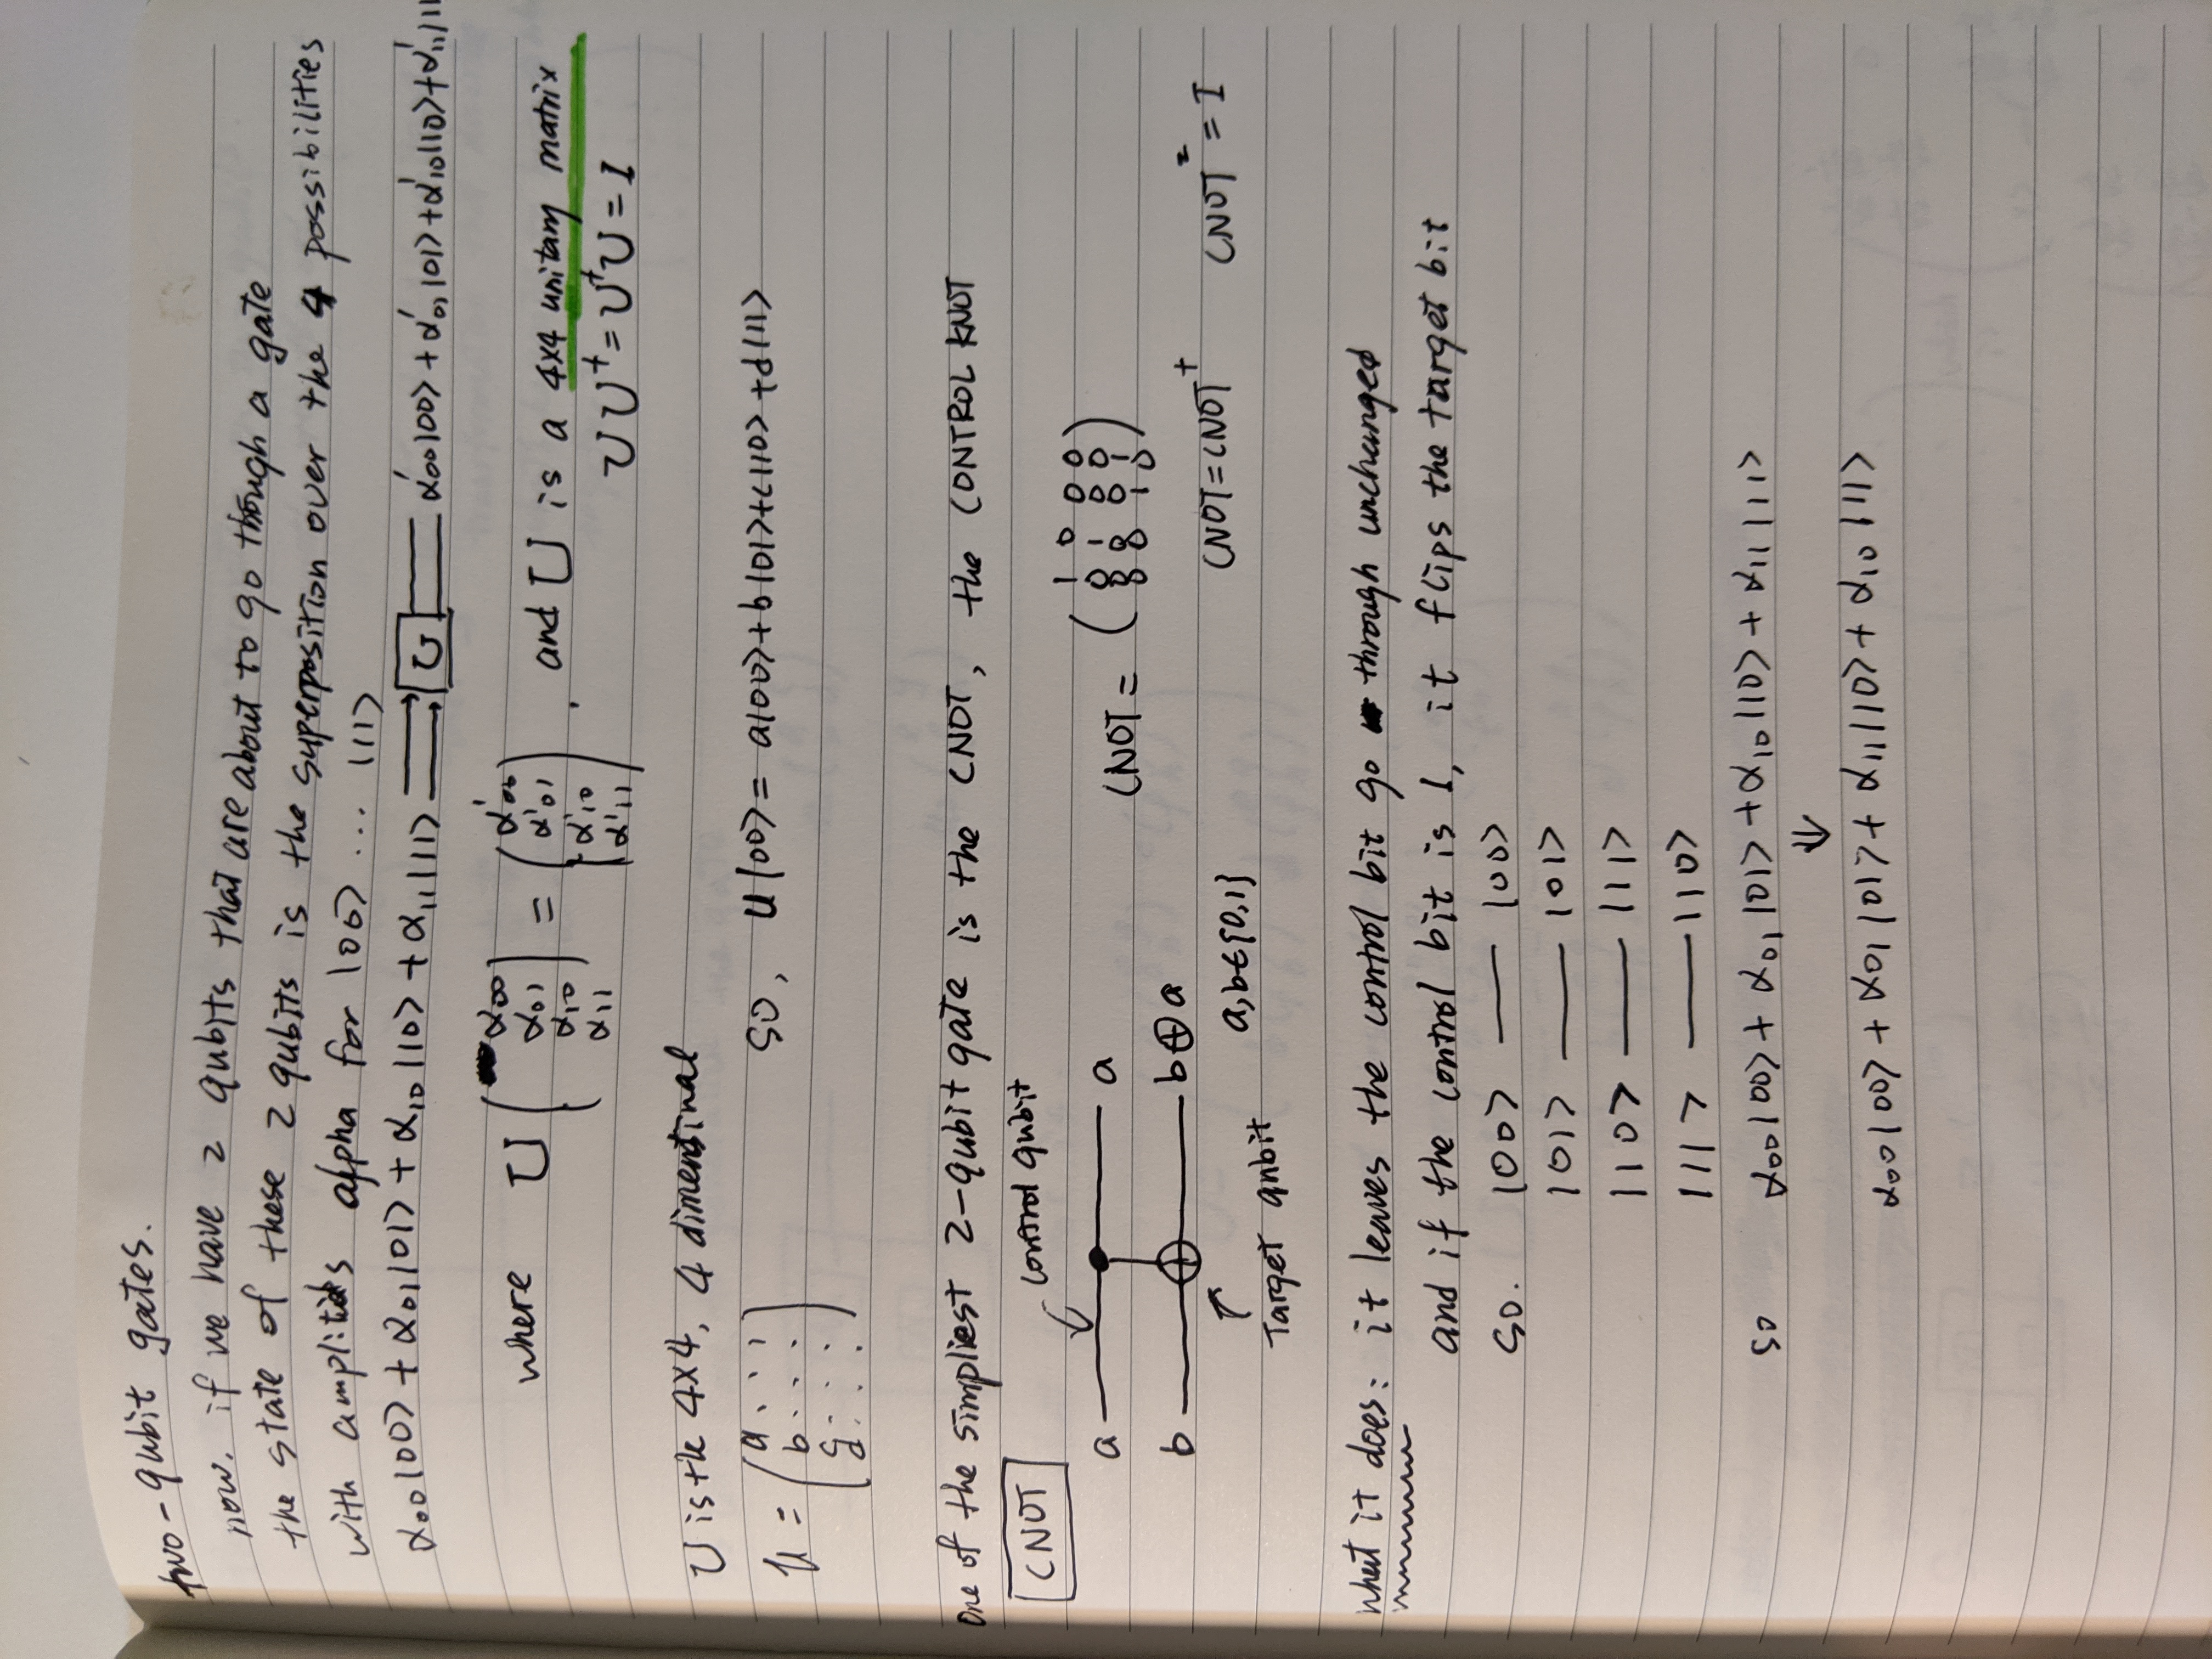 two-qubit gates.
now. if we have 2 qubits that are about to go though a gate
the state of these 2 qubits is the superposition over the 4 possibilities
with amplitids alpha for |00> ... |11>
α00|00> + α01|01> + α10|10> + α11|11> ⟹ U = α'00|00> + α'01|01> + α'10|10> + α'11|11
where U (α00 α01 α10 α11) = (α'00 α'01 α'10 α'11) . and U is a 4x4 unitary matrix
UU† = U†U = I
U is the 4x4, 4 dimentinal
U = (a . . . b . . . c . . . d . . .) so, U|00> = a|00> + b|01> + c|10> + d|11>
One of the simpliest 2-qubit gate is the CNOT, the CONTROL KNOT
CNOT
control qubit
a a
CNOT = (1 0 0 0 0 1 0 0 0 0 0 1 0 0 1 0)
b b⊕a
CNOT = CNOT† CNOT² = I
a,b∈{0,1}
Target qubit
what it does: it leaves the control bit go through unchanged
and if the control bit is 1, it flips the target bit
so. |00> — |00>
|01> — |01>
|10> — |11>
|11> — |10>
so α00|00> + α01|01> + α10|10> + α11|11>
⇓
α00|00> + α01|01> + α11|10> + α10|11>